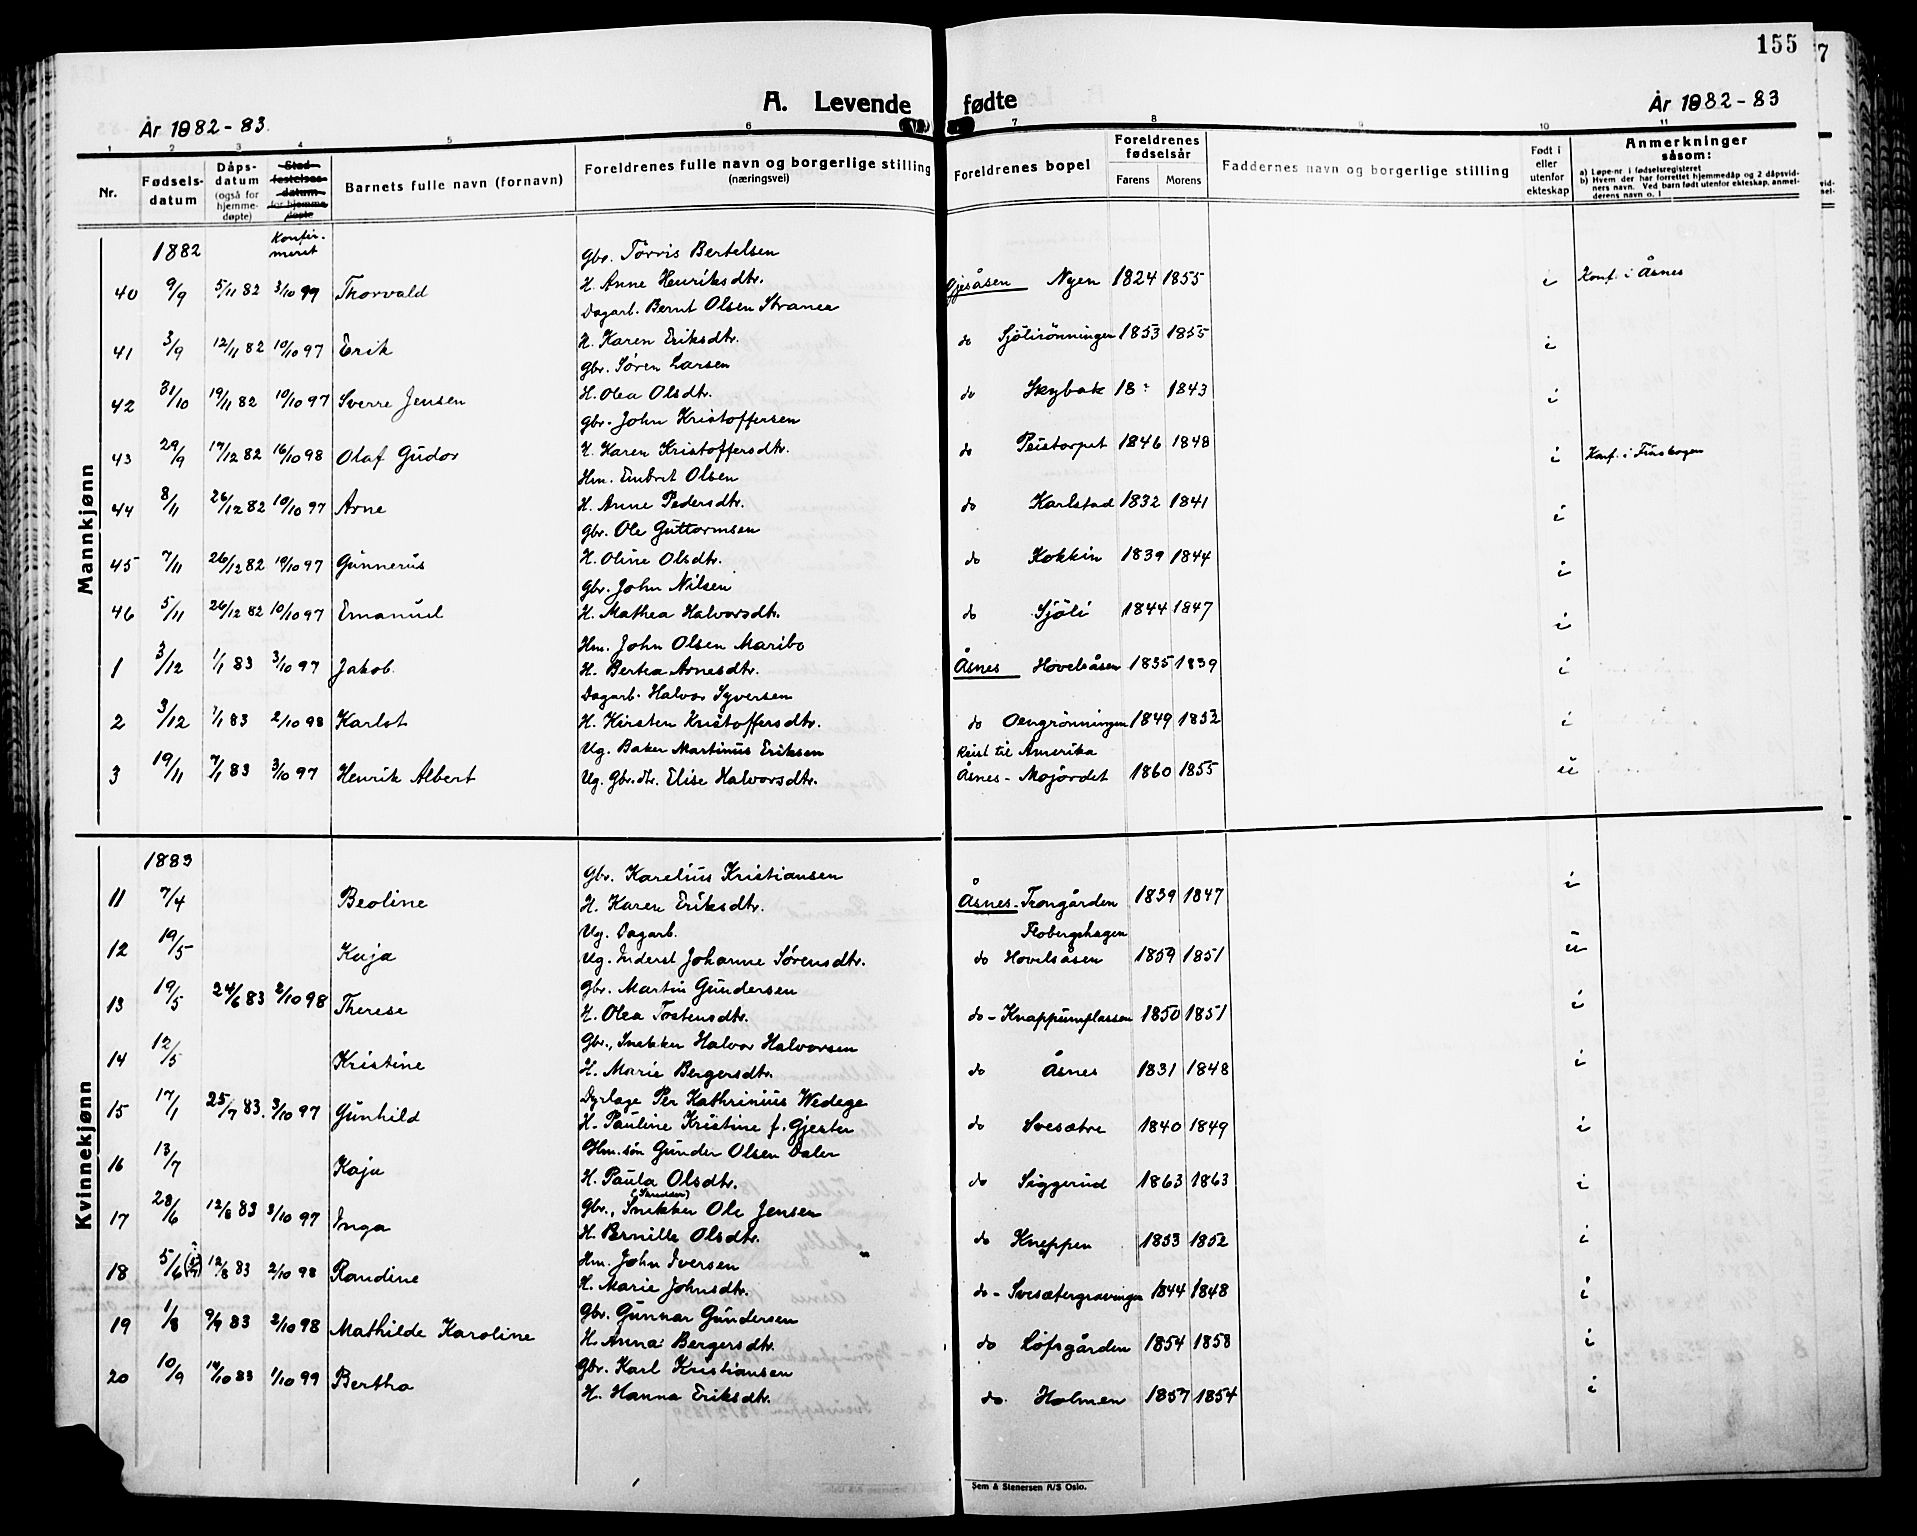 155
7
A. Levende fødte
År 1882-83.
År 1882-83
1 2 3 4 5 6 7 8 9 10 11
Nr.
Fødsels-datum
Dåps-datum (også for hjemme-døpte)
Stad-festelses-datum for hjemme-døpte
Barnets fulle navn (fornavn)
Foreldrenes fulle navn og borgerlige stilling (næringsvei)
Foreldrenes bopel
Foreldrenes fødselsår
Farens Morens
Faddernes navn og borgerlige stilling
Født i eller utenfor ekteskap
Anmerkninger såsom:
a) Løpe-nr. i fødselsregisteret
b) Hvem der har forrettet hjemmedåp og 2 dåpsvidners navn. Ved barn født utenfor ekteskap, anmelderens navn o. l
Mannkjønn
1882 Konfirmeret
Gbr. Torris Bertelsen
40 9/9 5/11 82 3/10 99 Thorvald H. Anne Henriksdtr. Gjesåsen Nyen 1824 1855 i Konf. i Åsnes
Dagarb. Bernt Olsen Stranea
41 3/9 12/11 82 10/10 97 Erik H. Karen Eriksdtr. do Sjölirönningen 1853 1855 i
Gbr. Sören Larsen
42 31/10 19/11 82 10/10 97 Sverre Jensen H. Olea Olsdtr. do Skybak 18 1843 i
Gbr. John Kristoffersen
43 29/9 17/12 82 16/10 98 Olaf Gudor H. Karen Kristoffersdtr. do Peistorpet 1846 1848 i Konf. i Finskogen
Hm. Embret Olsen
44 8/11 26/12 82 10/10 97 Arne H. Anne Pedersdtr. do Karlstad 1832 1841 i
Gbr. Ole Guttormsen
45 7/11 26/12 82 10/10 97 Gunnerus H. Oline Olsdtr. do Kokkin 1839 1844 i
Gbr. John Nilsen
46 5/11 26/12 82 10/10 97 Emanuel H. Mathea Halvorsdtr. do Sjöli 1844 1847 i
Hm. John Olsen Maribo
1 3/12 1/1 83 3/10 97 Jakob H. Bertea Arnesdtr. Åsnes Hovelsåsen 1835 1839 i
Dagarb. Halvor Syversen
2 3/12 1/1 83 2/10 98 Karlot H. Kirsten Kristoffersdtr. do Oengrönningen 1849 1852 i
Ug. Baker Martinus Eriksen Reist til Amerika
3 19/11 7/1 83 3/10 97 Henrik Albert Ug. Gbr.dtr. Elise Halvorsdtr. Åsnes - Mojordet 1860 1855 u
Kvinnekjønn
1883
Gbr. Karelius Kristiansen
11 7/4 Beoline H. Karen Eriksdtr. Åsnes - Trongården 1839 1847 i
Ug. Dagarb. Flobergshagen
12 19/5 Kaja Ug. Inderst Johanne Sörensdtr. do Hovelsåsen 1859 1851 u
Gbr. Martin Gundersen
13 19/5 24/6 83 2/10 98 Therese H. Olea Tostensdtr. do - Knappumplassen 1850 1851 i
Gbr., Snekker Halvor Halvorsen
14 12/5 Kristine H. Marie Bergersdtr. do Åsnes 1831 1848 i
Dyrlæge Per Kathrinius Wedege
15 17/1 25/7 83. 3/10 97 Gunhild H. Pauline Kristine f. Gjester do Svesætre 1840 1849 i
Hm.sön Gunder Olsen Daler
16 13/7 Kaja H. Paula Olsdtr. do Siggerud 1863 1863 i
Gbr., Snekker Ole Jensen
17 28/6 12/8 83 3/10 97 Inga H. Pernille Olsdtr. do Kneppen 1853 1852 i
Hm. John Iversen
18 5/6 12/8 83 2/10 98 Randine H. Marie Johnsdtr. do - Svesætergravingen 1844 1848 i
Gbr. Gunnar Gundersen
19 1/8 9/9 83 2/10 98 Mathilde Karoline H. Anna Bergersdtr. do Lofsgården 1854 1858 i
Gbr. Karl Kristiansen
20 10/9 14/10 83 1/10 99 Bertha H. Hanna Eriksdtr. do. Holmen 1857 1854 i
Sem & Stenersen A/S Oslo.